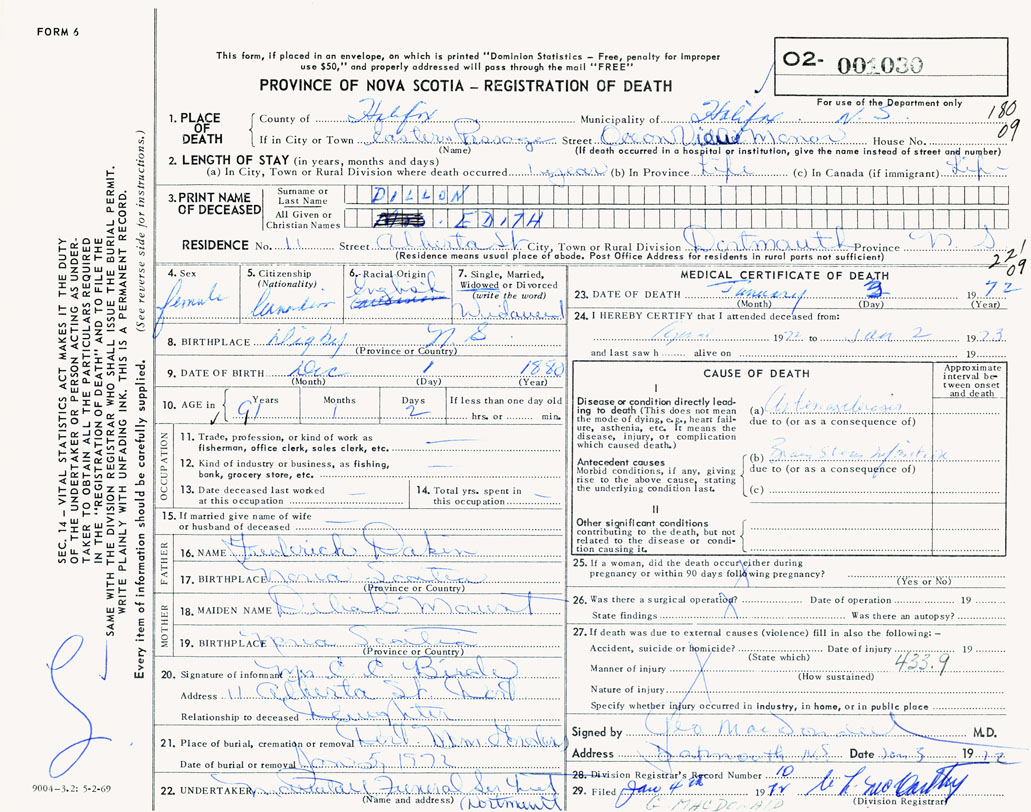 FORM 6
This form, if placed in an envelope, on which is printed "Dominion Statistics – Free, penalty for improper
use $50," and properly addressed will pass through the mail "FREE"
O2- 001030
For use of the Department only
PROVINCE OF NOVA SCOTIA – REGISTRATION OF DEATH
180
09
1. PLACE OF DEATH
County of Halifax Municipality of Halifax N.S.
If in City or Town Eastern Passage Street Ocean View Manor House No.
(Name) (If death occurred in a hospital or institution, give the name instead of street and number)
2. LENGTH OF STAY (in years, months and days)
(a) In City, Town or Rural Division where death occurred 1 year (b) In Province Life (c) In Canada (if immigrant) Life
3. PRINT NAME OF DECEASED
Surname or Last Name DILLON
All Given or Christian Names EDITH
RESIDENCE No. 11 Street Alberta St. City, Town or Rural Division Dartmouth Province N S
(Residence means usual place of abode. Post Office Address for residents in rural parts not sufficient)
221
09
4. Sex female
5. Citizenship (Nationality) Canadian
6. Racial Origin English
7. Single, Married, Widowed or Divorced (write the word) Widowed
8. BIRTHPLACE Digby N S
(Province or Country)
9. DATE OF BIRTH Dec 1 1880
(Month) (Day) (Year)
10. AGE in Years 91 Months 1 Days 2 If less than one day old
hrs. or min.
OCCUPATION
11. Trade, profession, or kind of work as
fisherman, office clerk, sales clerk, etc. —
12. Kind of industry or business, as fishing,
bank, grocery store, etc. —
13. Date deceased last worked
at this occupation —
14. Total yrs. spent in
this occupation —
15. If married give name of wife
or husband of deceased —
FATHER
16. NAME Frederick Dakin
17. BIRTHPLACE Nova Scotia
(Province or Country)
MOTHER
18. MAIDEN NAME
19. BIRTHPLACE Nova Scotia
(Province or Country)
20. Signature of informant Mrs C C
Address 11 Alberta St. Dart
Relationship to deceased Daughter
21. Place of burial, cremation or removal Gardens
Date of burial or removal Jan 5, 1972
22. UNDERTAKER Funeral Ser
(Name and address) Dartmouth
MEDICAL CERTIFICATE OF DEATH
23. DATE OF DEATH January 3 1972
(Month) (Day) (Year)
24. I HEREBY CERTIFY that I attended deceased from:
1972 to Jan 2 1973
and last saw h alive on 19
CAUSE OF DEATH
Approximate interval between onset and death
I
Disease or condition directly leading to death (This does not mean the mode of dying, e.g., heart failure, asthenia, etc. It means the disease, injury, or complication which caused death.)
(a)
due to (or as a consequence of)
Antecedent causes
Morbid conditions, if any, giving rise to the above cause, stating the underlying condition last.
(b) Brain Stem
due to (or as a consequence of)
(c)
II
Other significant conditions
contributing to the death, but not related to the disease or condition causing it.
25. If a woman, did the death occur either during
pregnancy or within 90 days following pregnancy?
(Yes or No)
26. Was there a surgical operation? Date of operation 19
State findings Was there an autopsy?
27. If death was due to external causes (violence) fill in also the following: –
Accident, suicide or homicide? Date of injury 19
(State which)
433.9
Manner of injury
(How sustained)
Nature of injury
Specify whether injury occurred in industry, in home, or in public place
Signed by Geo MacDonald M.D.
Address Dartmouth N.S. Date Jan 3 1972
28. Division Registrar's Record Number 10
29. Filed Jan 4th 1972
(Division Registrar)
G MACDONALD
SEC. 14 – VITAL STATISTICS ACT MAKES IT THE DUTY
OF THE UNDERTAKER OR PERSON ACTING AS UNDER-
TAKER TO OBTAIN ALL THE PARTICULARS REQUIRED
IN THE "REGISTRATION OF DEATH" AND TO FILE THE
SAME WITH THE DIVISION REGISTRAR WHO SHALL ISSUE THE BURIAL PERMIT.
WRITE PLAINLY WITH UNFADING INK. THIS IS A PERMANENT RECORD.
Every item of information should be carefully supplied. (See reverse side for instructions.)
9004-3.2: 5-2-69